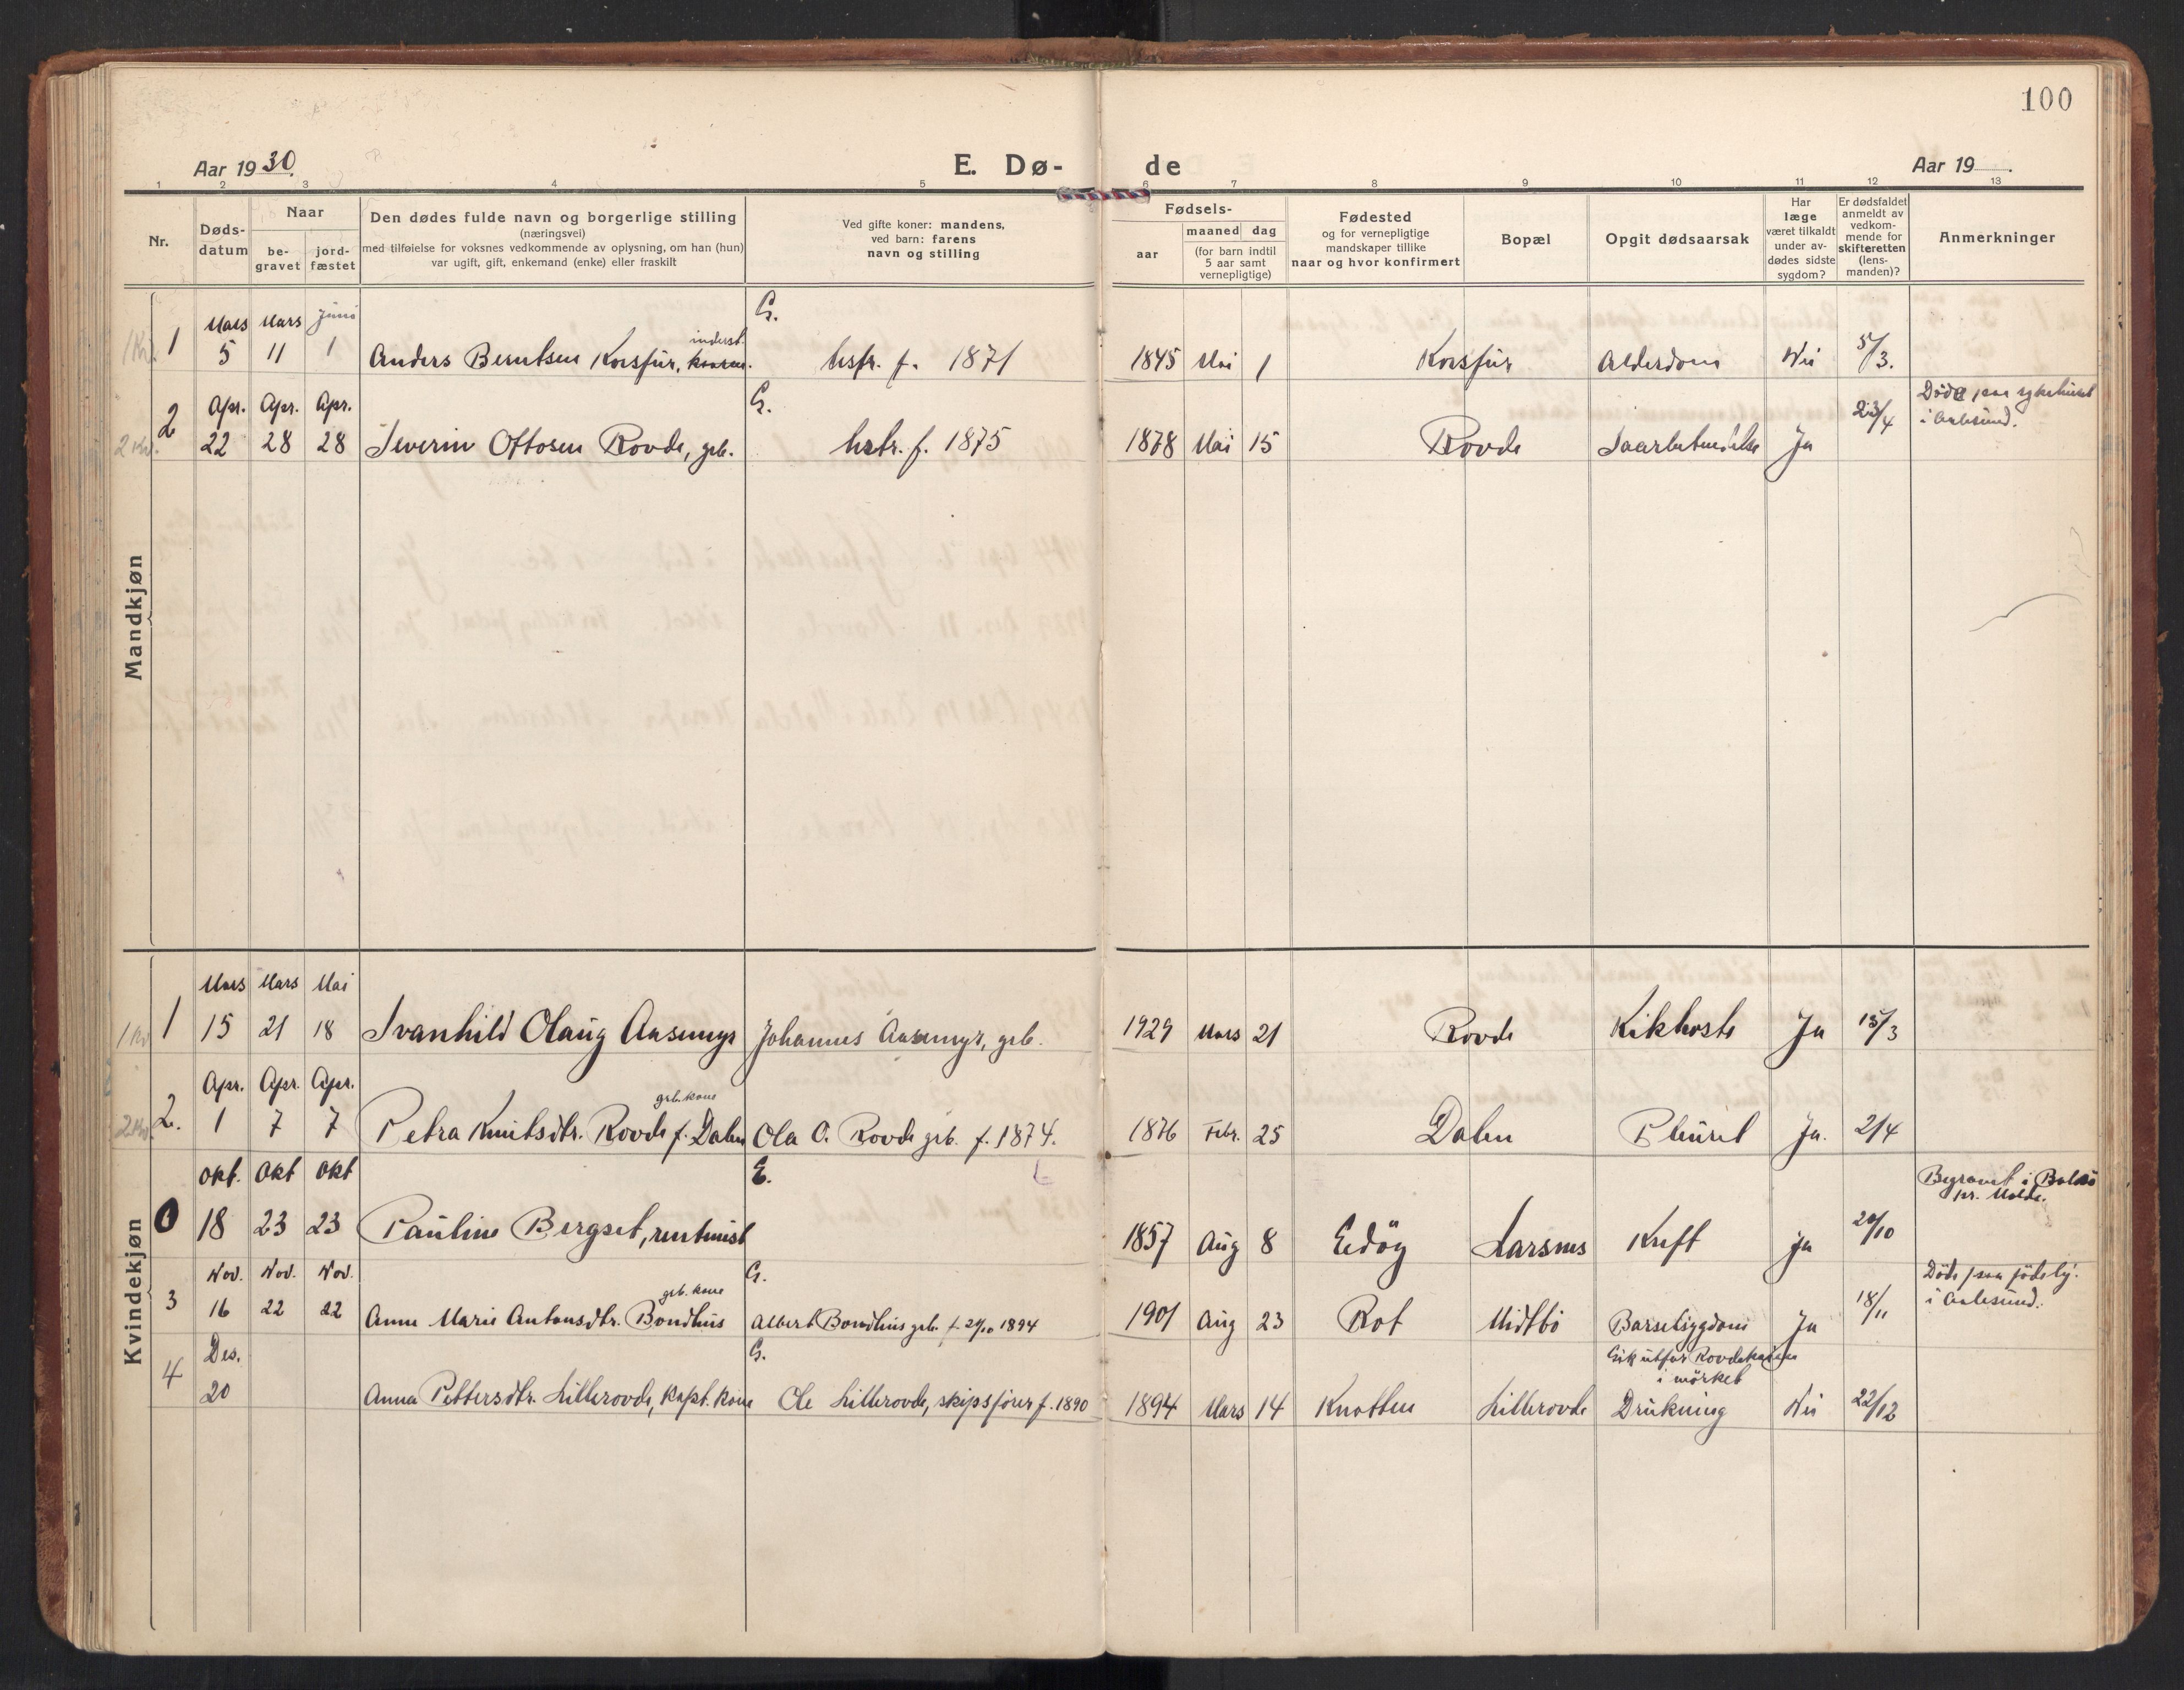 100
Aar 1930.
E. Dø-
de
Aar 19
1 2 3 4 5 6 7 8 9 10 11 12 13
Nr.
Døds-
datum
Naar
be-
gravet
jord-
fæstet
Den dødes fulde navn og borgerlige stilling
(næringsvei)
med tilføielse for voksnes vedkommende av oplysning, om han (hun)
var ugift, gift, enkemand (enke) eller fraskilt
Ved gifte koner: mandens,
ved barn: farens
navn og stilling
Fødsels-
aar
maaned dag
(for barn indtil
5 aar samt
vernepligtige)
Fødested
og for vernepligtige
mandskaper tillike
naar og hvor konfirmert
Bopæl
Opgit dødsaarsak
Har
læge
været tilkaldt
under av-
dødes sidste
sygdom?
Er dødsfaldet
anmeldt av
vedkom-
mende for
skifteretten
(lens-
manden)?
Anmerkninger
Mandkjøn
Mars Mars Juni G.
inderst.
1 5 11 1 Anders Berntsen Korsfur, hsfr. f. 1871 1845 Mai 1 Korsfur Alderdom Nei 5/3.
Apr. Apr. Apr. G. Døde paa sykehuset
i Aalesund.
2 22 28 28 Severin Ottosen Rovde, grb. hstr. f. 1875 1878 Mai 15 Rovde Ja 23/4
Kvindekjøn
Mars Mars Mai
1 15 21 18 Svanhild Olaug Aasemyr Johannes Aasemyr, grb. 1929 Mars 21 Rovde Kikhoste Ja 15/3
Apr. Apr. Apr.
grb. kone
2. 1 7 7 Petra Knutsdtr. Rovde f. Dalen Ola O. Rovde grb. f. 1874. 1876 Febr. 25 Dalen Pleurit Ja. 2/4
Okt. Okt Okt E. Begravet i Bolsø
pr. Molde.
0 18 23 23 Pauline Bergset, rentenist 1857 Aug 8 Edöy Larsnes Kreft ja 20/10
Nov. Nov. Nov. G. Döde paa födeh.
i Aalesund.
grb. kone
3 16 22 22 Anne Marie Antonsdtr. Bondhus Albert Bondhus grb. f. 29/10 1894 1901 Aug 23 Rot Midtbö Barselsygdom Ja 18/11
Des. G. Gik utfor Rovdekaien
i mörket
4 20 Anna Pettersdtr. Lillerovde, kapt. kone Ole Lillerovde, skipsförer f. 1890 1894 Mars 14 Knotten Lillerovde Drukning Nei 22/12